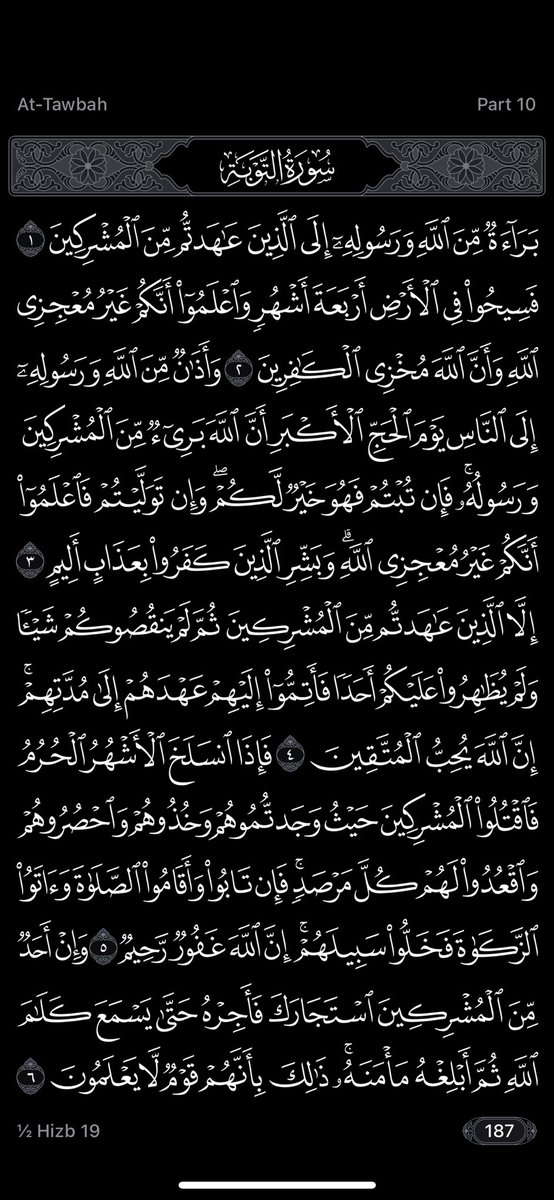 At-Tawbah
Part 10
سُورَةُ التَّوۡبَةِ
بَرَآءَةٌ مِّنَ ٱللَّهِ وَرَسُولِهِۦٓ إِلَى ٱلَّذِينَ عَٰهَدتُّم مِّنَ ٱلۡمُشۡرِكِينَ ١
فَسِيحُواْ فِي ٱلۡأَرۡضِ أَرۡبَعَةَ أَشۡهُرٖ وَٱعۡلَمُوٓاْ أَنَّكُمۡ غَيۡرُ مُعۡجِزِي
ٱللَّهِ وَأَنَّ ٱللَّهَ مُخۡزِي ٱلۡكَٰفِرِينَ ٢ وَأَذَٰنٞ مِّنَ ٱللَّهِ وَرَسُولِهِۦٓ
إِلَى ٱلنَّاسِ يَوۡمَ ٱلۡحَجِّ ٱلۡأَكۡبَرِ أَنَّ ٱللَّهَ بَرِيٓءٞ مِّنَ ٱلۡمُشۡرِكِينَ
وَرَسُولُهُۥۚ فَإِن تُبۡتُمۡ فَهُوَ خَيۡرٞ لَّكُمۡۖ وَإِن تَوَلَّيۡتُمۡ فَٱعۡلَمُوٓاْ
أَنَّكُمۡ غَيۡرُ مُعۡجِزِي ٱللَّهِۗ وَبَشِّرِ ٱلَّذِينَ كَفَرُواْ بِعَذَابٍ أَلِيمٍ ٣
إِلَّا ٱلَّذِينَ عَٰهَدتُّم مِّنَ ٱلۡمُشۡرِكِينَ ثُمَّ لَمۡ يَنقُصُوكُمۡ شَيۡـٔٗا
وَلَمۡ يُظَٰهِرُواْ عَلَيۡكُمۡ أَحَدٗا فَأَتِمُّوٓاْ إِلَيۡهِمۡ عَهۡدَهُمۡ إِلَىٰ مُدَّتِهِمۡۚ
إِنَّ ٱللَّهَ يُحِبُّ ٱلۡمُتَّقِينَ ٤ فَإِذَا ٱنسَلَخَ ٱلۡأَشۡهُرُ ٱلۡحُرُمُ
فَٱقۡتُلُواْ ٱلۡمُشۡرِكِينَ حَيۡثُ وَجَدتُّمُوهُمۡ وَخُذُوهُمۡ وَٱحۡصُرُوهُمۡ
وَٱقۡعُدُواْ لَهُمۡ كُلَّ مَرۡصَدٖۚ فَإِن تَابُواْ وَأَقَامُواْ ٱلصَّلَوٰةَ وَءَاتَوُاْ
ٱلزَّكَوٰةَ فَخَلُّواْ سَبِيلَهُمۡۚ إِنَّ ٱللَّهَ غَفُورٞ رَّحِيمٞ ٥ وَإِنۡ أَحَدٞ
مِّنَ ٱلۡمُشۡرِكِينَ ٱسۡتَجَارَكَ فَأَجِرۡهُ حَتَّىٰ يَسۡمَعَ كَلَٰمَ
ٱللَّهِ ثُمَّ أَبۡلِغۡهُ مَأۡمَنَهُۥۚ ذَٰلِكَ بِأَنَّهُمۡ قَوۡمٞ لَّا يَعۡلَمُونَ ٦
½ Hizb 19
187